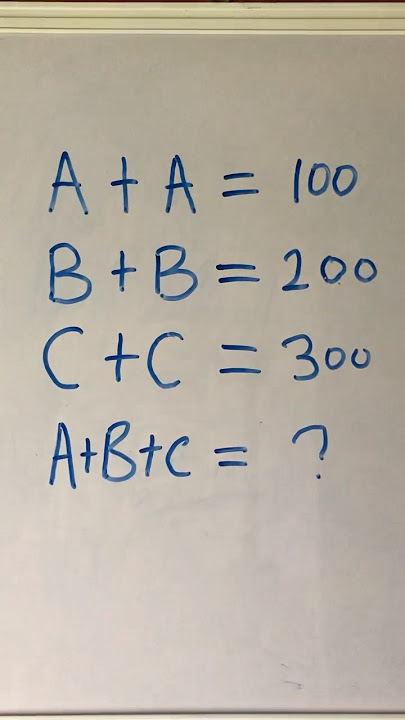 A + A = 100
B + B = 200
C + C = 300
A+B+C = ?